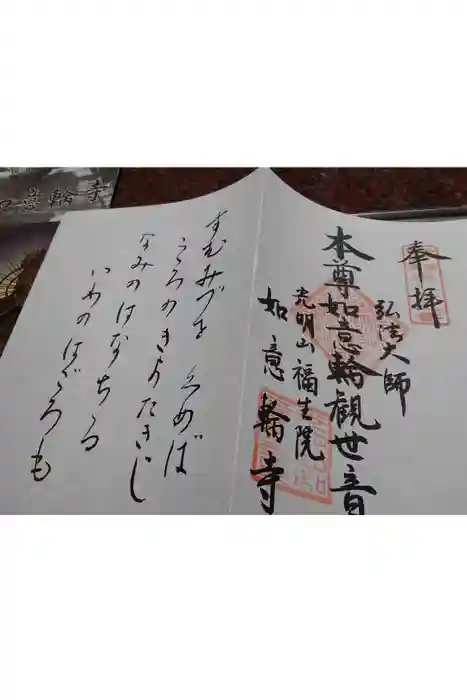 奉拝
弘法大師
本尊如意輪観世音
光明山福生院
如意輪寺
すむみづを くめば
こころのきよたきじ
なみのはなちる
いわのはごろも
如意輪寺